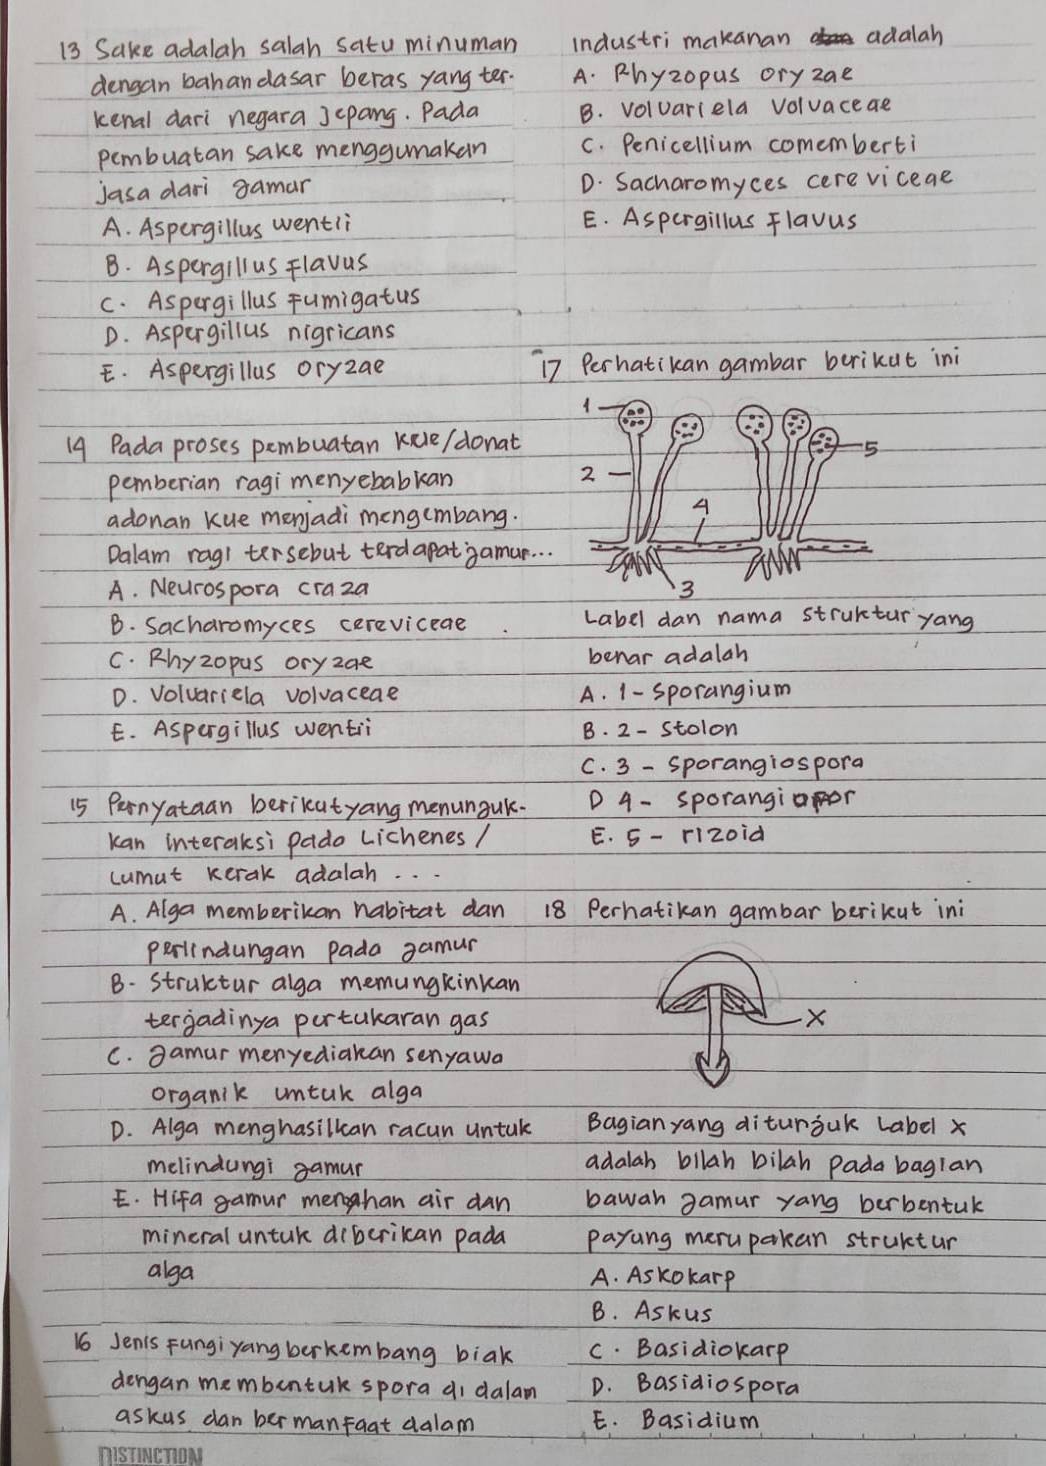 13 Sake adalah salah satu minuman
dengan bahan dasar beras yang ter-
kenal dari negara Jepang. Pada
pembuatan sake menggunakan
jasa dari jamur
A. Aspergillus wentii
B. Aspergillus flavus
C. Aspergillus fumigatus
D. Aspergillus nigricans
E. Aspergillus oryzae
14 Pada proses pembuatan kue/donat
pemberian ragi menyebabkan
adonan kue menjadi mengembang.
Dalam ragi tersebut terdapat jamur...
A. Neurospora craza
B. Sacharomyces cereviceae
C. Rhyzopus oryzae
D. Volvariela volvaceae
E. Aspergillus wentii
15 Pernyataan berikut yang menunjuk-
kan interaksi pada Lichenes /
Lumut kerak adalah ...
A. Alga memberikan habitat dan
perlindungan pada jamur
B. Struktur alga memungkinkan
terjadinya pertukaran gas
C. Jamur menyediakan senyawa
organik untuk alga
D. Alga menghasilkan racun untuk
melindungi jamur
E. Hifa jamur menahan air dan
mineral untuk diberikan pada
alga
16 Jenis fungi yang berkembang biak
dengan membentuk spora di dalam
askus dan bermanfaat dalam
DISTINCTION
industri makanan adalah
A. Rhyzopus oryzae
B. Volvariela Volvaceae
C. Penicellium comemberti
D. Sacharomyces cereviceae
E. Aspergillus flavus
17 Perhatikan gambar berikut ini
1
5
2
4
3
Label dan nama struktur yang
benar adalah
A. 1 - Sporangium
B. 2 - Stolon
C. 3 - Sporangiospora
D 4 - Sporangiofor
E. 5 - rizoid
18 Perhatikan gambar berikut ini
X
Bagian yang ditunjuk Label X
adalah bilah bilah pada bagian
bawah jamur yang berbentuk
payung merupakan struktur
A. Askokarp
B. Askus
C. Basidiokarp
D. Basidiospora
E. Basidium